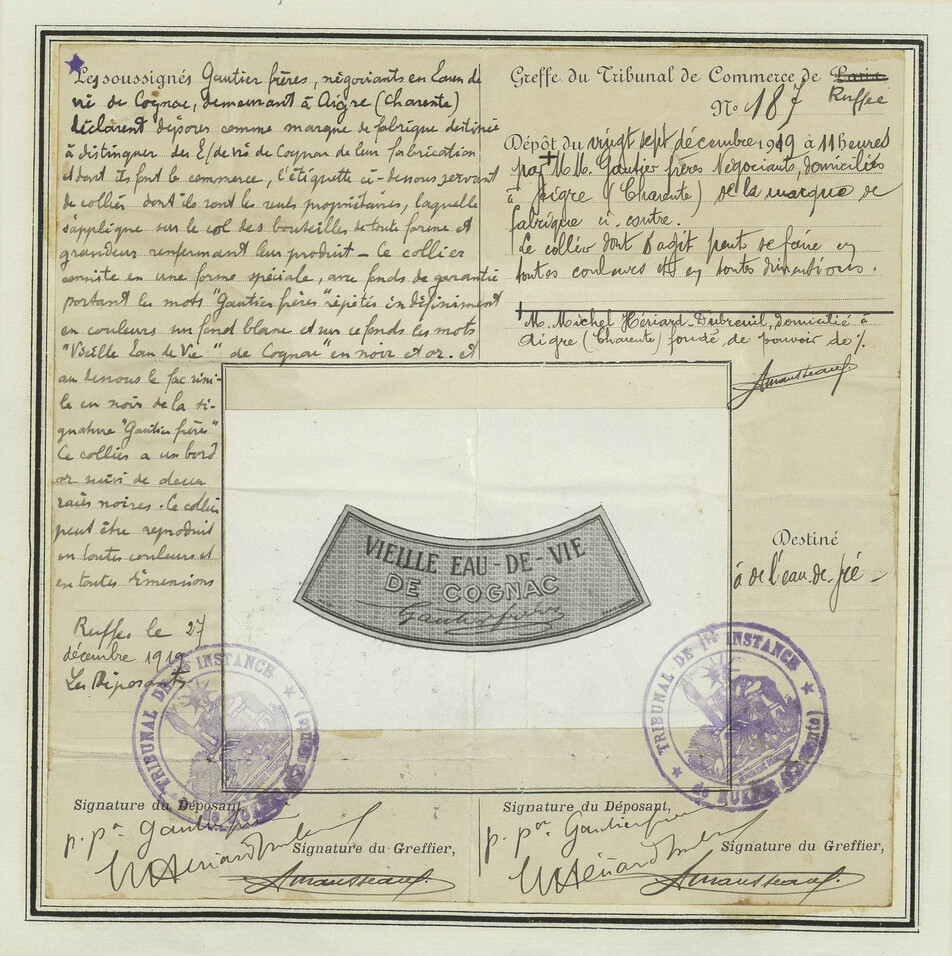 Les soussignés Gautier frères, négociants en Eaux de
vie de Cognac, demeurant à Aigre (Charente)
déclarent déposer comme marque de fabrique destinée
à distinguer des E/de vie de Cognac de leur fabrication
et dont ils font le commerce, l'étiquette ci-dessous servant
de collier dont ils sont les seuls propriétaires, laquelle
s'applique sur le col des bouteilles de toute forme et
grandeur renfermant leur produit - Ce collier
consiste en une forme spéciale, avec fonds de garantie
portant les mots "Gautier frères" répétés indéfiniment
en couleurs sur fond blanc et sur ce fonds les mots
"Vieille Eau de Vie" "de Cognac" en noir et or. et
au dessous le fac simi-
le en noir de la si-
gnature "Gautier frères"
Ce collier a un bord
or suivi de deux
raies noires. Ce collier
peut être reproduit
en toutes couleurs et
en toutes dimensions
Ruffec le 27
décembre 1919
Les Déposants
Greffe du Tribunal de Commerce de Paris
Ruffec
N° 187
Dépôt du vingt sept décembre 1919 à 11 heures
par MM. Gautier frères Négociants, domiciliés
à Aigre (Charente) de la marque de
fabrique ci-contre.
Le collier dont s'agit peut se faire en
toutes couleurs et en toutes dimensions.
M. Michel Hériard-Dubreuil, domicilié à
Aigre (Charente) fondé de pouvoir de %.
VIEILLE EAU-DE-VIE
DE COGNAC
Gautier frères
Destiné
à de l'eau-de-vie -
TRIBUNAL DE 1re INSTANCE
de RUFFEC (Charente)
TRIBUNAL DE 1re INSTANCE
de RUFFEC (Charente)
Signature du Déposant,
p. pon Gautier frères
Signature du Greffier,
Signature du Déposant,
p. pon Gautier frères
Signature du Greffier,